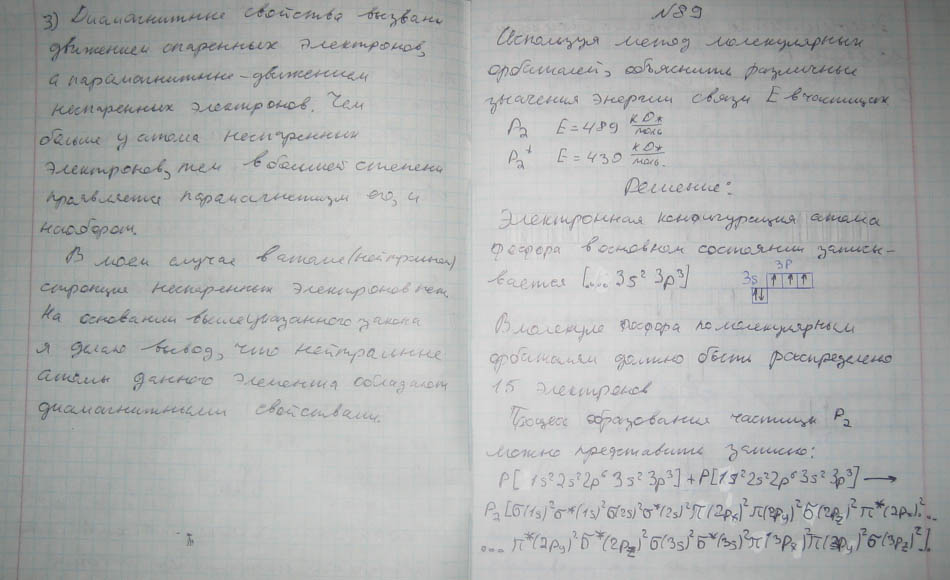 3) Диамагнитные свойства вызваны
движением спаренных электронов,
а парамагнитные – движением
неспаренных электронов. Чем
больше у атома неспаренных
электронов, тем в большей степени
проявляется парамагнетизм его, и
наоборот.
В моём случае в атоме (нейтральном)
стронция неспаренных электронов нет.
На основании вышеуказанного закона
я делаю вывод, что нейтральные
атомы данного элемента обладают
диамагнитными свойствами.
№89
Используя метод молекулярных
орбиталей, объясните различные
значения энергии связи E в частицах
P₂ E = 489 кДж/моль
P₂⁺ E = 430 кДж/моль.
Решение:
Электронная конфигурация атома
фосфора в основном состоянии записы-
вается [.... 3s² 3p³] 3s 3p
В молекуле фосфора по молекулярным
орбиталям должно быть распределено
15 электронов
Процесс образования частицы P₂
можно представить записью:
P[1s²2s²2p⁶3s²3p³] + P[1s²2s²2p⁶3s²3p³] →
P₂[σ(1s)²σ*(1s)²σ(2s)²σ*(2s)²π(2pₓ)²π(2py)²σ(2pz)²π*(2pₓ)²...
... π*(2py)²σ*(2pz)²σ(3s)²σ*(3s)²π(3pₓ)²π(3py)²σ(3pz)²].